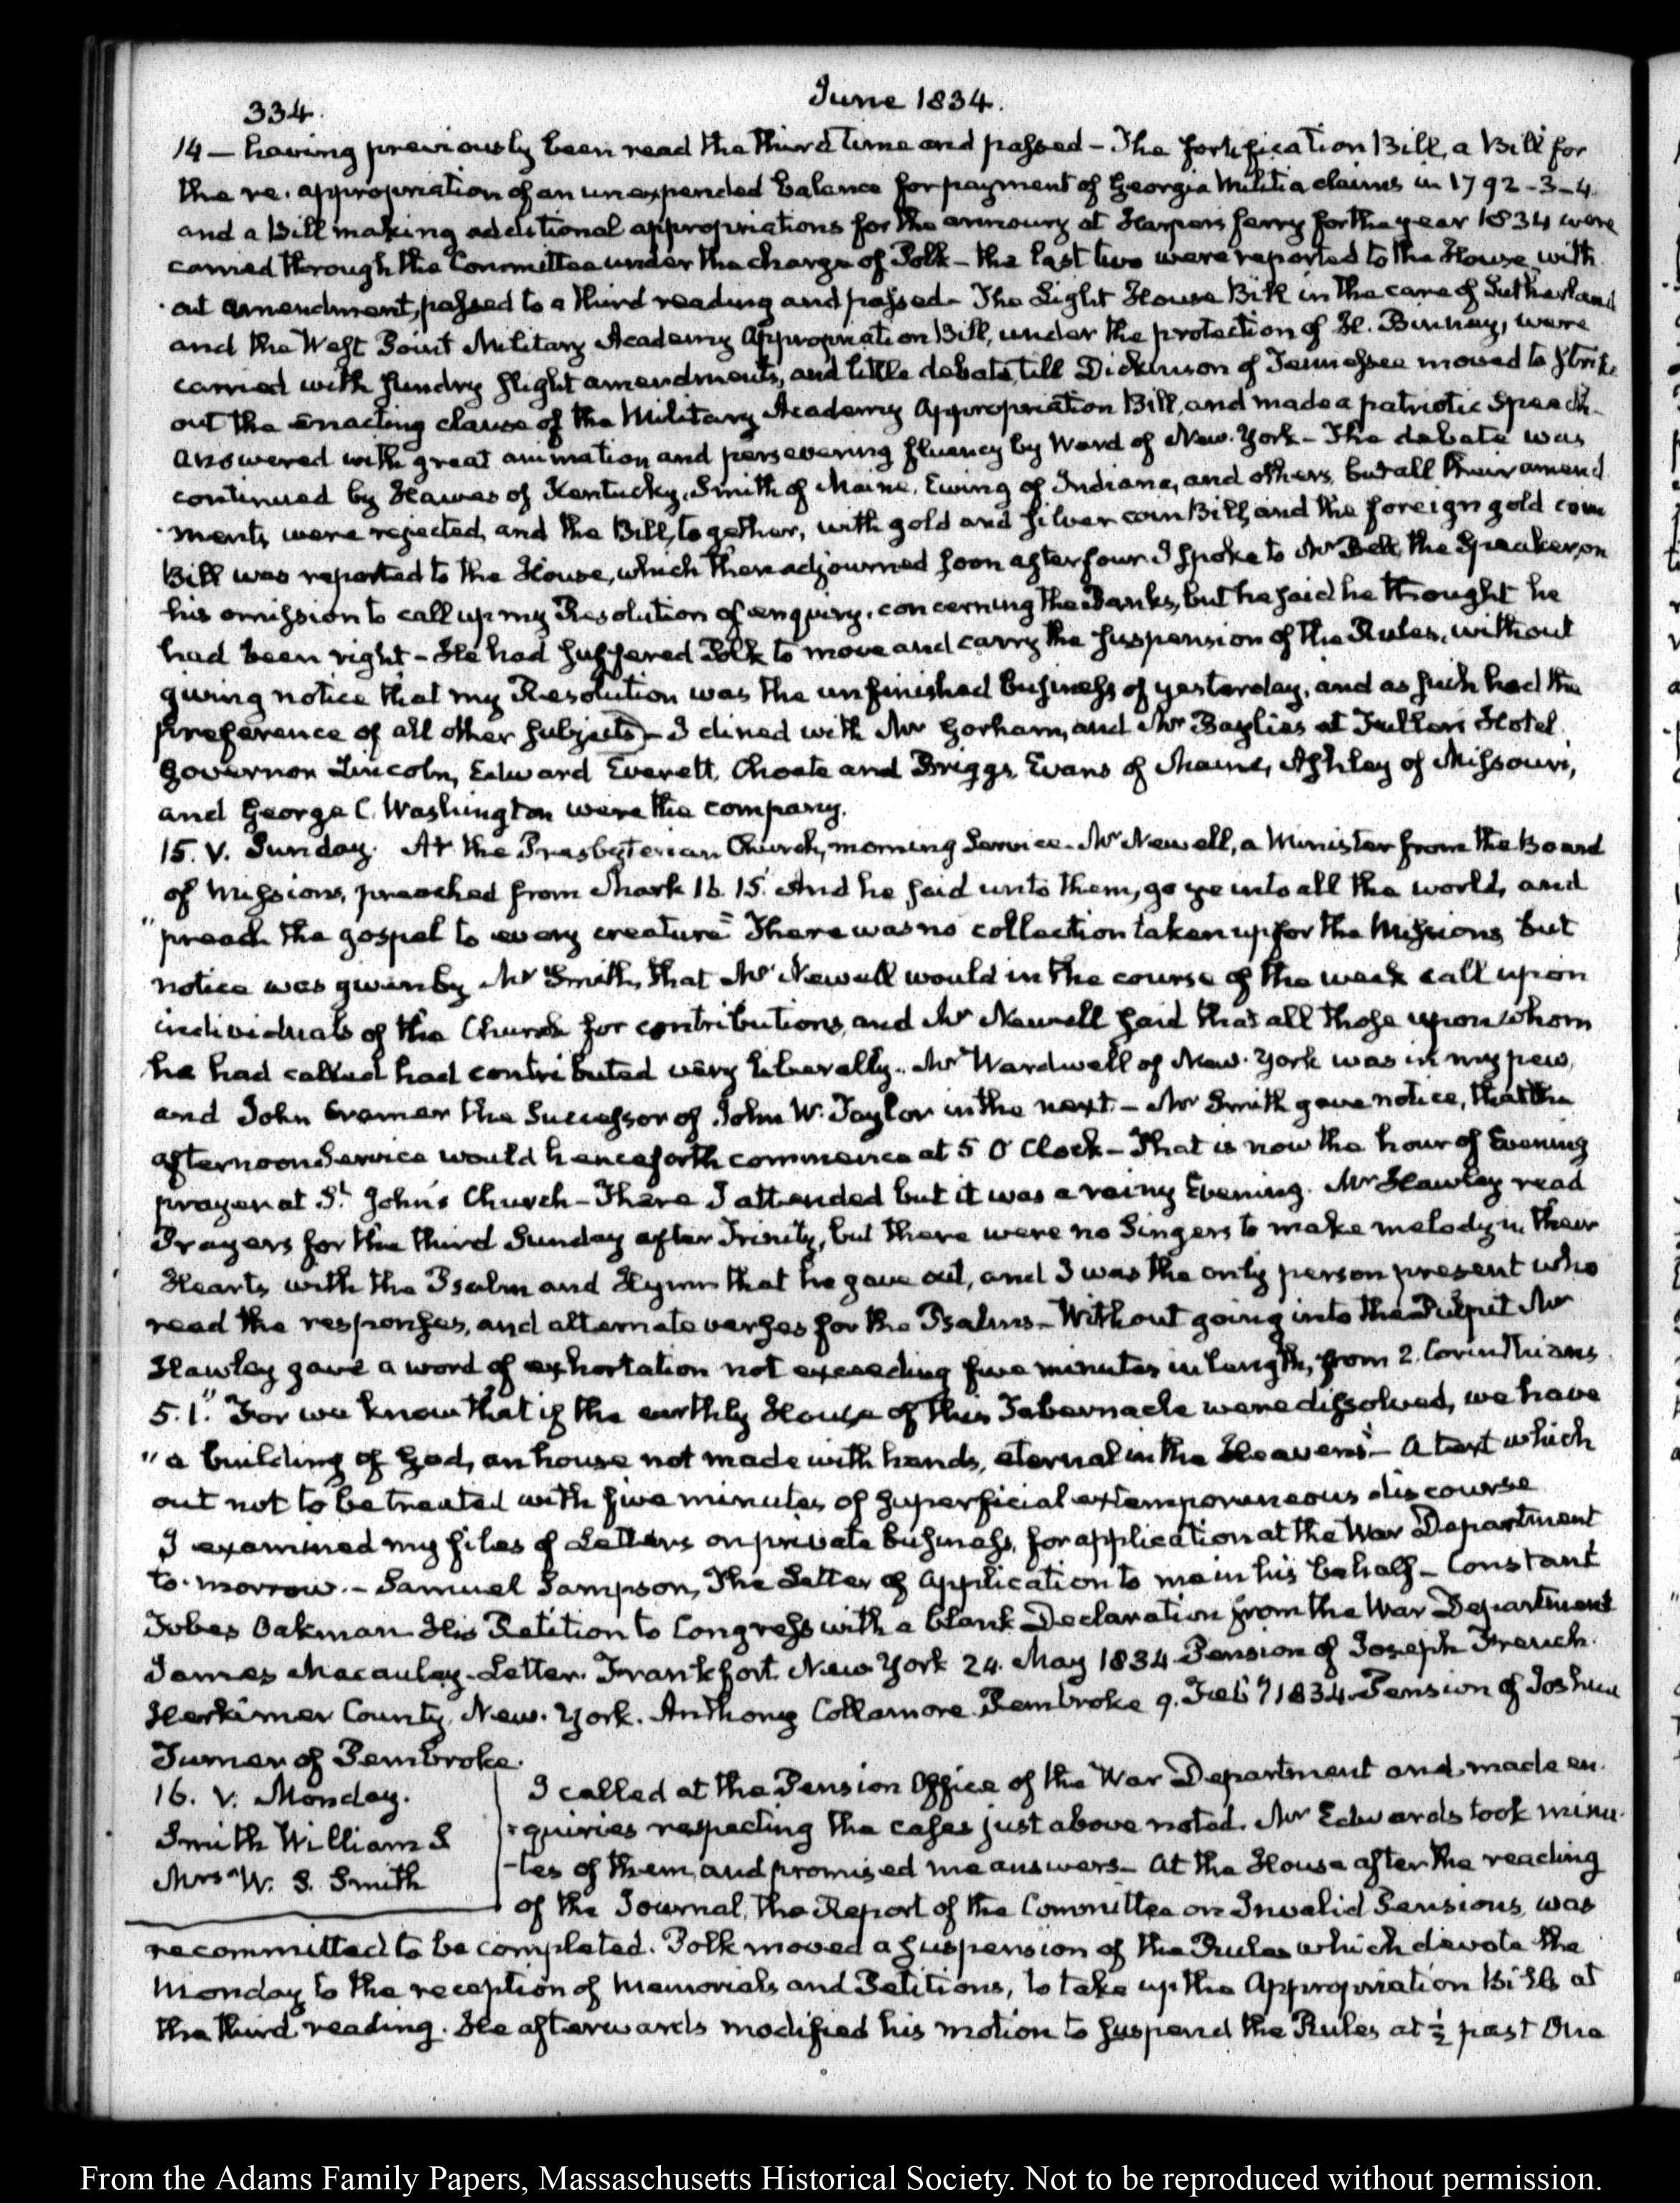 334.
June 1834.
14 — having previously been read the third time and passed – The fortification Bill, a Bill for
the re. appropriation of an unexpended balance for payment of Georgia Militia claims in 1792-3-4.
and a Bill making additional appropriations for the armoury at Harpers ferry for the year 1834 were
carried through the Committee under the charge of Polk – the last two were reported to the House, with
out amendment, passed to a third reading and passed – The Light House Bill in the care of Sutherland
and the West Point Military Academy Appropriation Bill, under the protection of H. Binney, were
carried with sundry slight amendments, and little debate, till Dickinson of Tennessee moved to strike
out the enacting clause of the Military Academy Appropriation Bill, and made a patriotic Speech –
answered with great animation and persevering fluency by Ward of New-York – The debate was
continued by Hawes of Kentucky, Smith of Maine, Ewing of Indiana, and others, but all their amend
-ments were rejected, and the Bill, together, with gold and silver coin Bill, and the foreign gold coin
Bill was reported to the House, which then adjourned soon after four I spoke to Mr Bell, the Speaker, on
his omission to call up my Resolution of enquiry, concerning the Banks, but he said he thought he
had been right – He had suffered Polk to move and carry the suspension of the Rules, without
giving notice that my Resolution was the unfinished business of yesterday, and as such had the
preference of all other subjects – I dined with Mr Gorham, and Mr Baylies at Fulton's Hotel.
Governor Lincoln, Edward Everett, Choate and Briggs, Evans of Maine, Ashley of Missouri,
and George C. Washington were the company.
15. V. Sunday. At the Presbyterian Church, morning Service. Mr Newell, a Minister from the Board
of Missions, preached from Mark 16. 15. And he said unto them, go ye into all the world, and
"preach the gospel to every creature" There was no collection taken up for the Missions but
notice was given by Mr Smith, that Mr Newell would in the course of the week call upon
individuals of the Church for contributions, and Mr Newell said that all those upon whom
he had called had contributed very liberally. Mr Wardwell of New-York was in my pew,
and John Cramer the Successor of John W. Taylor in the next. – Mr Smith gave notice, that the
afternoon Service would henceforth commence at 5 O'Clock – That is now the hour of Evening
prayer at St. John's Church – There I attended but it was a rainy Evening. Mr Hawley read
Prayers for the third Sunday after Trinity, but there were no Singers to make melody in their
Hearts with the Psalm and Hymn that he gave out, and I was the only person present who
read the responses, and alternate verses for the Psalms – Without going into the Pulpit Mr
Hawley gave a word of exhortation not exceeding five minutes in length, from 2. Corinthians
5.1. "For we know that if the earthly House of this Tabernacle were dissolved, we have
"a building of God, an house not made with hands, eternal in the Heavens" – A text which
out not to be treated with five minutes of superficial extemporaneous discourse
I examined my files of Letters on private business, for application at the War Department
to-morrow. – Samuel Sampson, The Letter of application to me in his behalf – Constant
Fobes Oakman His Petition to Congress with a blank Declaration from the War Department
James Macauley. Letter. Frankfort New York 24. May 1834 Pension of Joseph French.
Herkimer County, New-York. Anthony Collamore. Pembroke 9. Feby 1834. Pension of Joshua
Turner of Pembroke.
16. V. Monday.
Smith William S
Mrs W. S. Smith
I called at the Pension Office of the War Department and made en-
-quiries respecting the cases just above noted. Mr Edwards took minu-
-tes of them, and promised me answers – At the House after the reading
of the Journal, the Report of the Committee on Invalid Pensions, was
recommitted to be completed. Polk moved a suspension of the Rules which devote the
Monday to the reception of Memorials and Petitions, to take up the Appropriation Bills at
the third reading. He afterwards modified his motion to suspend the Rules at ½ past One
From the Adams Family Papers, Massachusetts Historical Society. Not to be reproduced without permission.